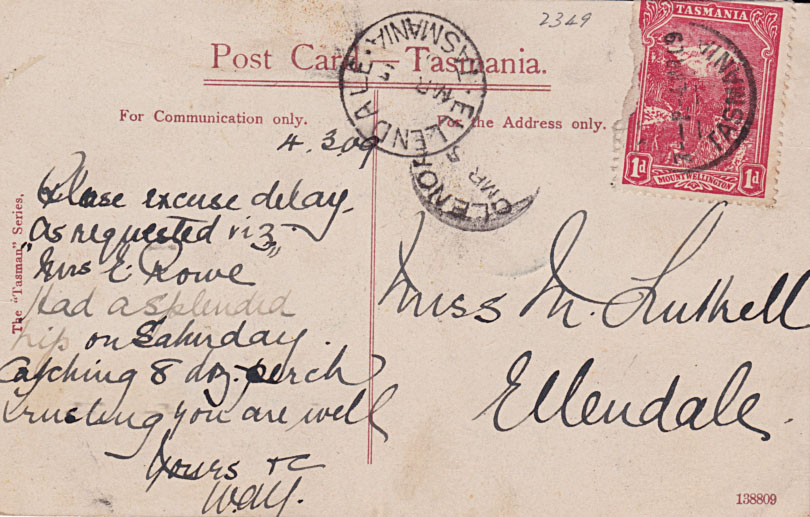 2349
TASMANIA
Post Card — Tasmania.
ELLENDALE. TASMANIA.
MR
TASMANIA
1d 1d
MOUNT WELLINGTON
For Communication only.
For the Address only.
GLENOR
MR 5
4.3.09
Please excuse delay.
"As requested viz"
Mrs E. Rowe
Had a splendid
trip on Saturday.
Catching 8 doz. perch
Trusting you are well
Yours &c
The "Tasman" Series,
Miss M. Luttrell
Ellendale.
138809